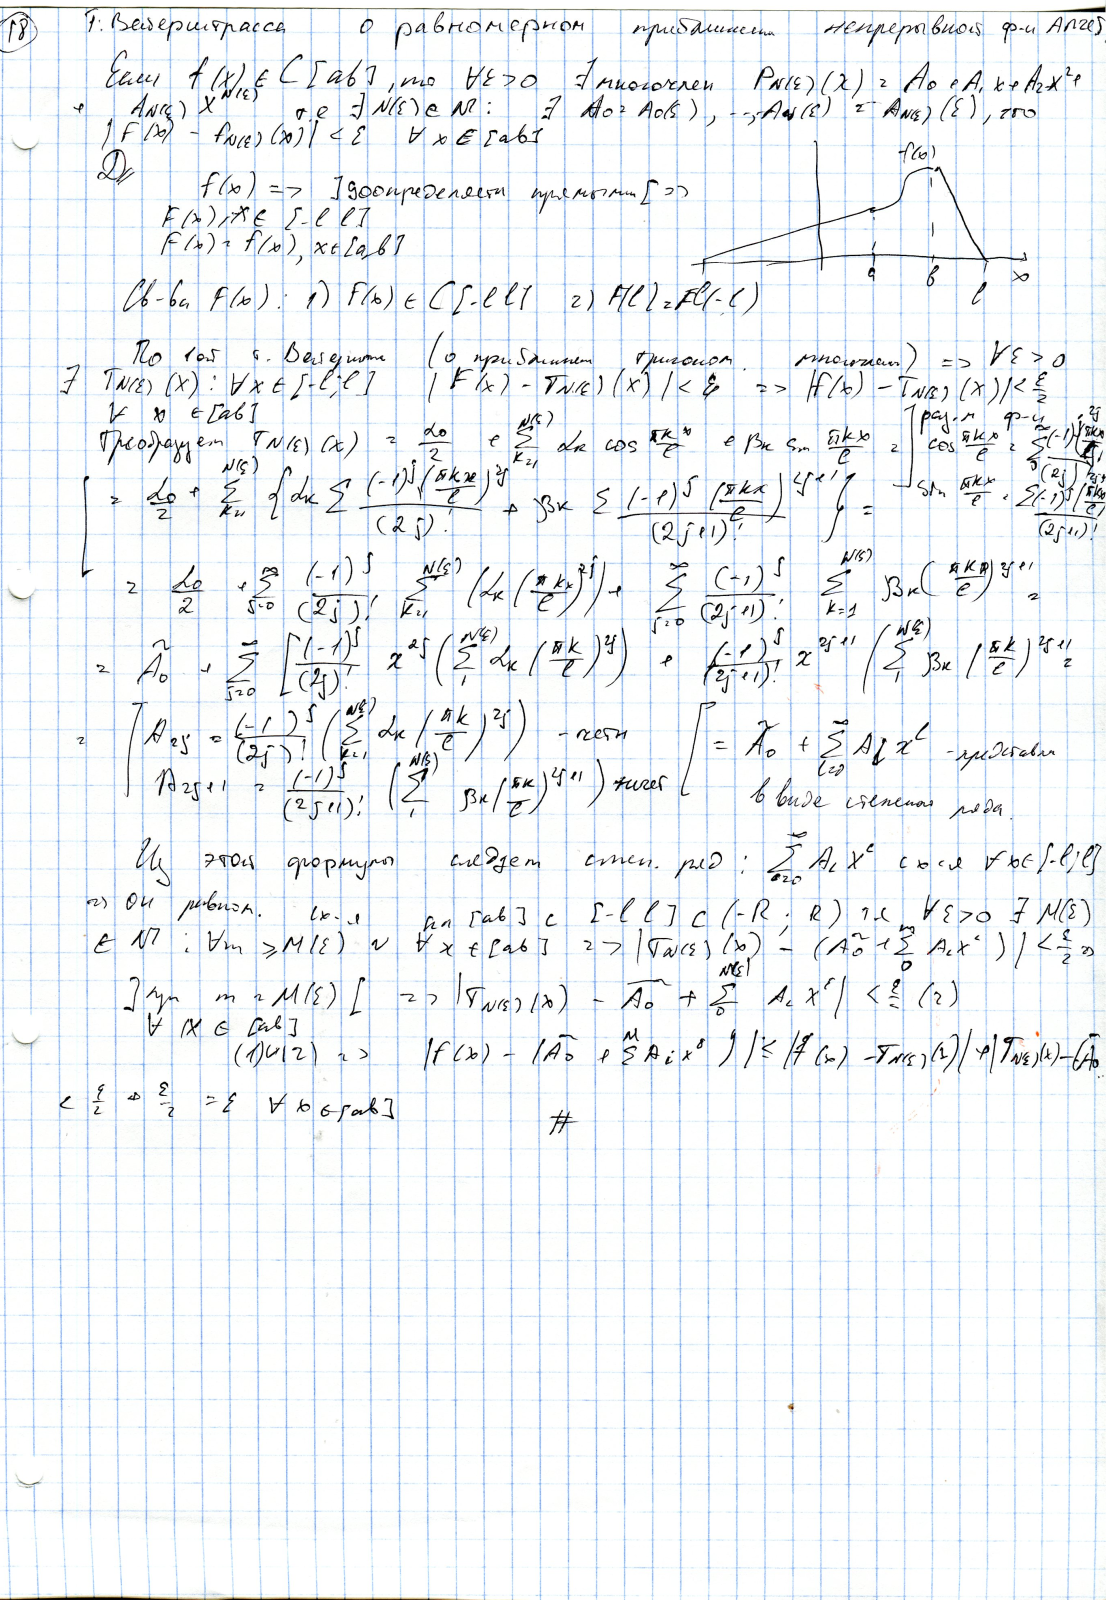 18
Т. Вейерштрасса о равномерном приближении непрерывной ф-и Алгеб
Если f(x) ∈ C[ab], то ∀ε>0 ∃ многочлен P_{N(ε)}(x) = A₀ + A₁x + A₂x² +
+ A_{N(ε)} X^{N(ε)} т.е ∃ N(ε) ∈ N : ∃ A₀ = A₀(ε), ..., A_{N(ε)}(ε), что
|F(x) - f_{N(ε)}(x)| < ε ∀ x ∈ [ab]
До
f(x)
f(x) => ]доопределяем прямыми[ =>
F(x), x ∈ [-l l]
F(x) = f(x), x ∈ [a,b]
a b l x
Св-ва F(x): 1) F(x) ∈ C[-l l] 2) F(l) = F(-l)
По 1ой т. Вейершт (о приближен тригоном. многочлен) => ∀ε > 0
∃ T_{N(ε)}(x) : ∀x ∈ [-l; l] |F(x) - T_{N(ε)}(x)| < ε => |f(x) - T_{N(ε)}(x)| < ε/2
∀ x ∈ [ab]
Преобразуем T_{N(ε)}(x) = α₀/2 + Σ_{k=1}^{N(ε)} αk cos πkx/l + βk sin πkx/l = ]раз. м ф-и cos πkx/l = Σ_0^∞ (-1)^j (πkx/l)^{2j} / (2j)!
sin πkx/l = Σ (-1)^j (πkx/l)^{2j+1} / (2j+1)!
[ = α₀/2 + Σ_{k=1}^{N(ε)} { αk Σ (-1)^j (πkx/l)^{2j} / (2j)! + βk Σ (-1)^j (πkx/l)^{2j+1} / (2j+1)! } =
= α₀/2 + Σ_{j=0}^∞ (-1)^j/(2j)! Σ_{k=1}^{N(ε)} (αk (πkx/l)^{2j}) + Σ_{j=0}^∞ (-1)^j/(2j+1)! Σ_{k=1}^{N(ε)} βk (πkx/l)^{2j+1} =
= Ã₀ + Σ_{j=0}^∞ [ (-1)^j/(2j)! x^{2j} (Σ_1^{N(ε)} αk (πk/l)^{2j}) + (-1)^j/(2j+1)! x^{2j+1} (Σ_1^{N(ε)} βk (πk/l)^{2j+1} =
= [ A_{2j} = (-1)^j/(2j)! (Σ_{k=1}^{N(ε)} αk (πk/l)^{2j}) - четн [ = Ã₀ + Σ_{i=0}^∞ A_i x^i - представи
A_{2j+1} = (-1)^j/(2j+1)! (Σ_1^{N(ε)} βk (πk/l)^{2j+1}) нечет в виде степенного ряда.
Из этой формулы следует степ. ряд: Σ_{i=0}^∞ A_i x^i сх-ся ∀x ∈ [-l; l]
=> он равном. сх-я на [ab] ⊂ [-l l] ⊂ (-R; R) т.е ∀ε>0 ∃ M(ε)
∈ N : ∀m ≥ M(ε) и ∀ x ∈ [ab] => |T_{N(ε)}(x) - (Ã₀ + Σ_0^m A_i x^i)| < ε/2 =>
] при m = M(ε) [ => |T_{N(ε)}(x) - Ã₀ + Σ_0^{N(ε)} A_i x^i| < ε/2 (2)
∀ x ∈ [ab]
(1)и(2) => |f(x) - (Ã₀ + Σ^M A_i x^i)| ≤ |f(x) - T_{N(ε)}(x)| + |T_{N(ε)}(x) - (Ã₀
< ε/2 + ε/2 = ε ∀ x ∈ [ab]
#